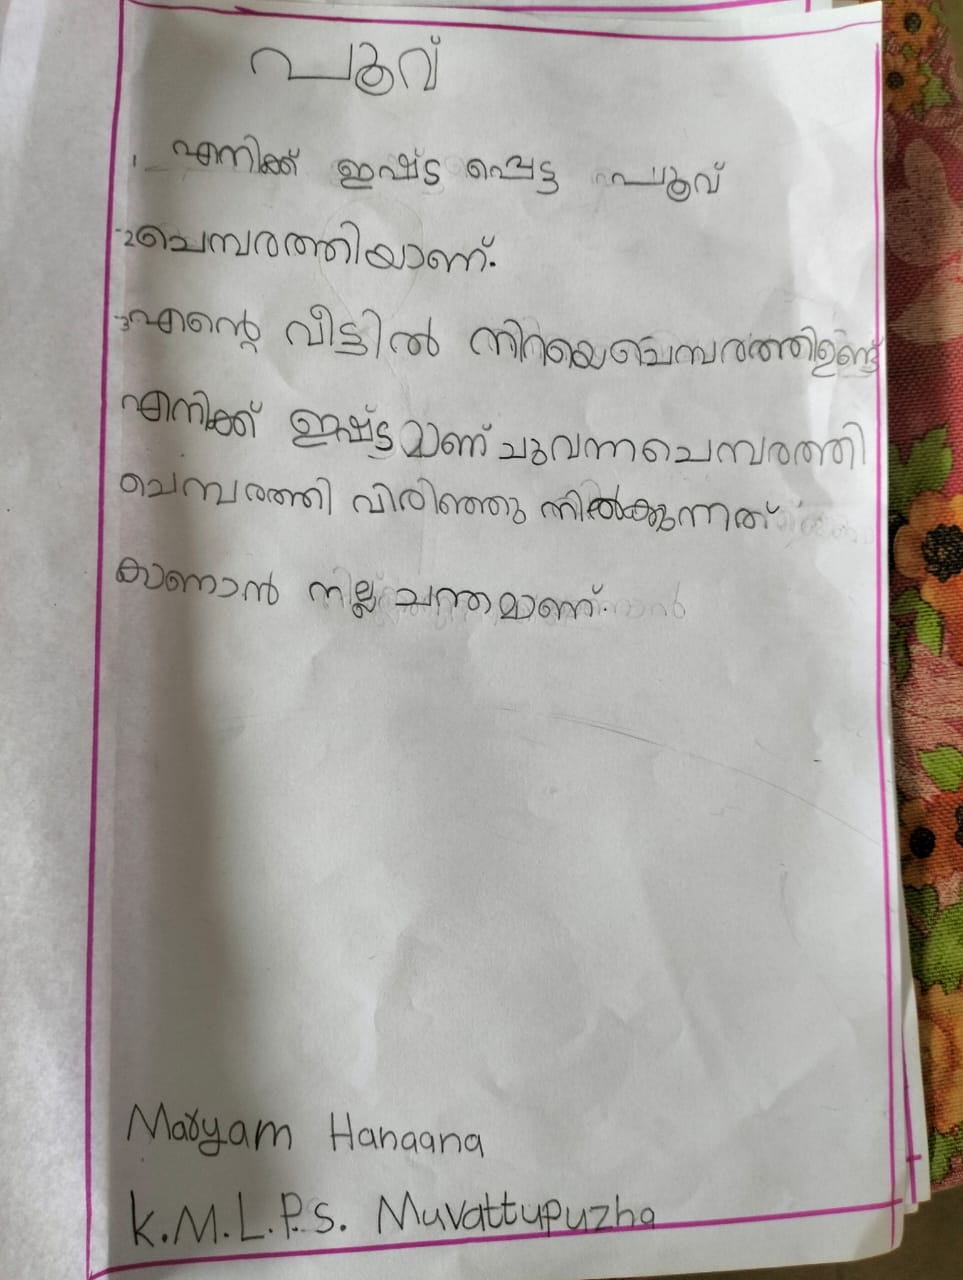 പൂവ്
1 എനിക്ക് ഇഷ്ട പ്പെട്ട പൂവ്
2 ചെമ്പരത്തിയാണ്.
3 എന്റെ വീട്ടിൽ നിറയെ ചെമ്പരത്തി ഉണ്ട്
എനിക്ക് ഇഷ്ടമാണ് ചുവന്ന ചെമ്പരത്തി
ചെമ്പരത്തി വിരിഞ്ഞു നിൽക്കുന്നത്
കാണാൻ നില്ല ചന്തമാണ്.
Maryam Hanaana
K.M.L.P.S. Muvattupuzha